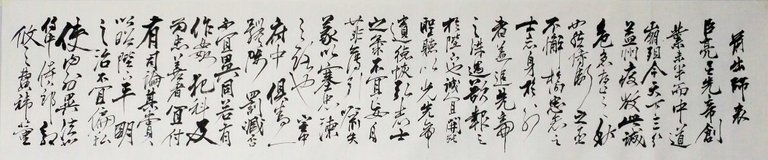 前出師表
臣亮言先帝創
業未半而中道
崩殂今天下三分
益州疲敝此誠
危急存亡之秋
也然侍衛之臣
不懈於內忠志之
士忘身於外
者蓋追先帝
之殊遇欲報之
於陛下也誠宜開張
聖聽以光先帝
遺德恢弘志士
之氣不宜妄自
菲薄引喻失
義以塞忠諫
之路也宮中
府中俱為一
體陟罰臧否
不宜異同若有
作奸犯科及
為忠善者宜付
有司論其賞
以昭陛下平明
之治不宜偏私
使內外異法
侍中侍郎郭
攸之費禕董